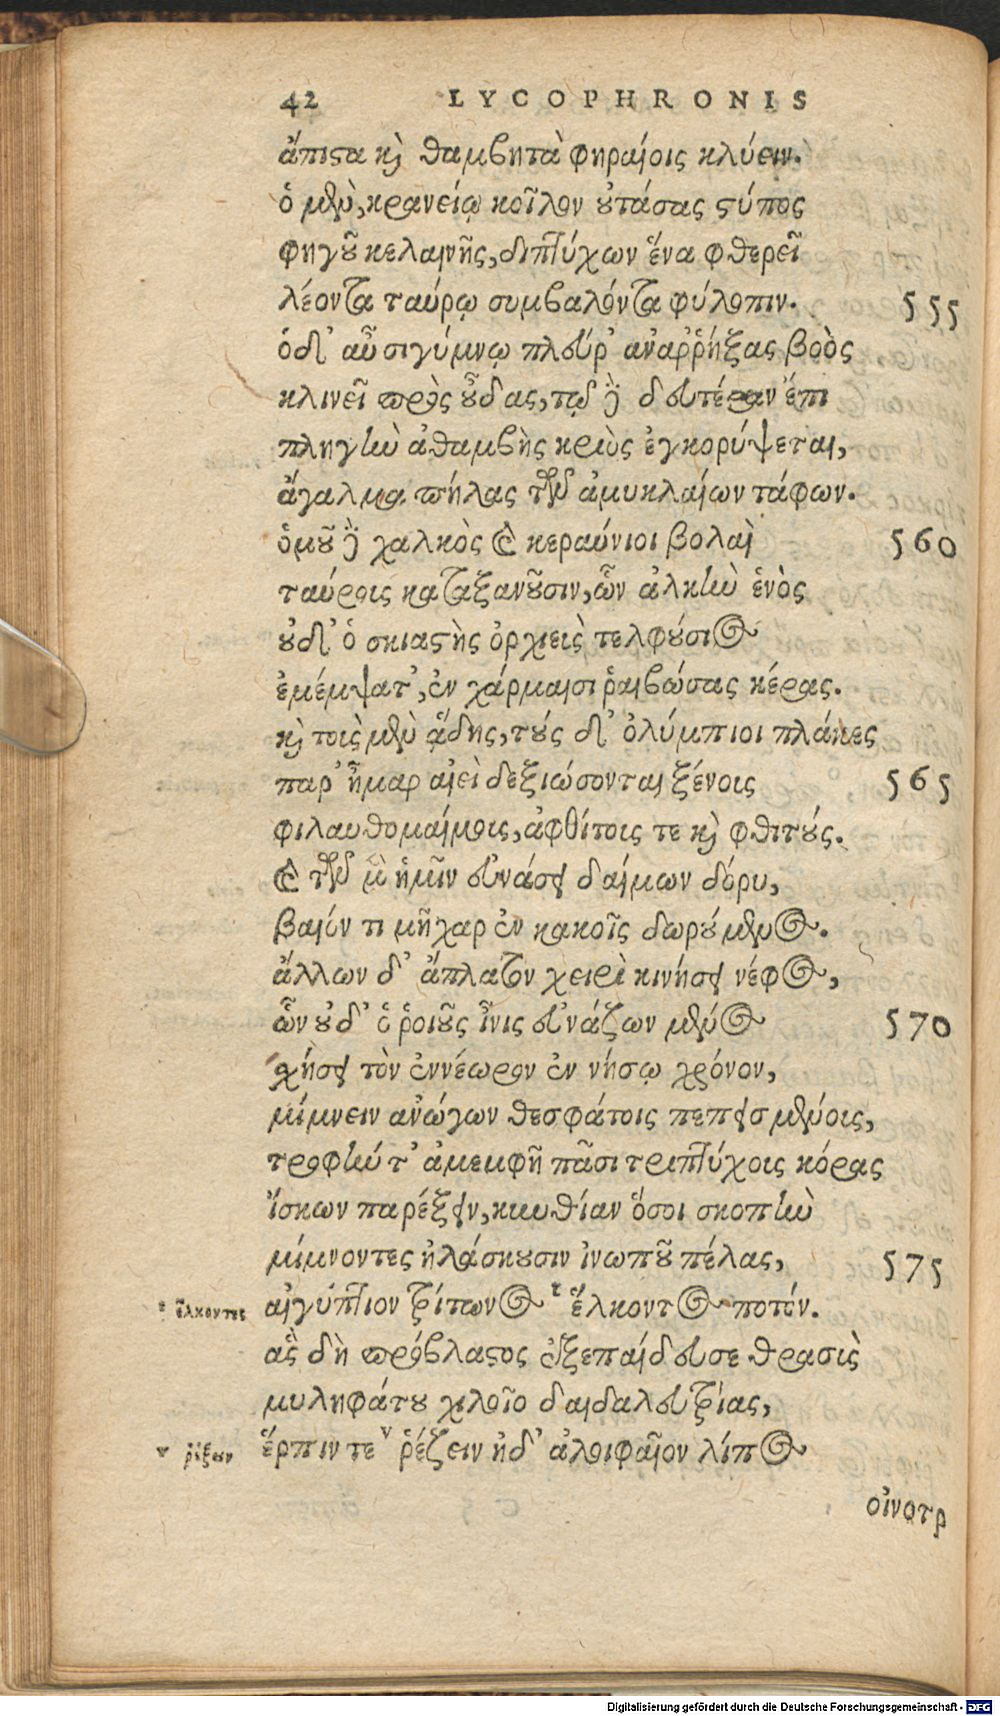 42 LYCOPHRONIS
ἄπιστα καὶ θαμβητὰ φηραίοις κλύειν.
ὁ μὲν, κρανείῳ κοῖλον οὐτάσας στύπος
φηγοῦ κελαινῆς, διπτύχων ἕνα φθερεῖ
λέοντα ταύρῳ συμβαλόντα φύλοπιν. 555
ὁ δ' αὖ σιγύμνῳ πλεύρ' ἀναῤῥήξας βοὸς
κλινεῖ πρὸς οὖδας, τῷ δὲ δευτέραν ἔπι
πληγὴν ἀθαμβὴς κριὸς ἐγκορύψεται,
ἄγαλμα πήλας τῶν ἀμυκλαίων τάφων.
ὁμοῦ δὲ χαλκὸς καὶ κεραύνιοι βολαὶ 560
ταύροις καταξανοῦσιν, ὧν ἀλκὴν ἑνὸς
οὐδ' ὁ σκιαστὴς ὀρχιεὺς τελφούσιος
ἐμέμψατ', ἐν χάρμαισι ῥαιβώσας κέρας.
καὶ τοὺς μὲν ᾅδης, τοὺς δ' ὀλύμπιοι πλάκες
παρ' ἦμαρ αἰεὶ δεξιώσονται ξένοις 565
φιλαυθομαίμοις, ἀφθίτοις τε καὶ φθιτούς.
καὶ τῶν μὲν ἡμῖν εὐνάσει δαίμων δόρυ,
βαιόν τι μῆχαρ ἐν κακοῖς δωρούμενος.
ἄλλων δ' ἄπλατον χειρὶ κινήσει νέφος,
ὧν οὐδ' ὁ ῥοιοῦς ἶνις εὐνάζων μένος 570
χήσει τὸν ἐννέωρον ἐν νήσῳ χρόνον,
μίμνειν ἀνώγων θεσφάτοις πεπεισμένοις,
τροφήν τ' ἀμεμφῆ πᾶσι τριπτύχοις κόρας
ἴσκων παρέξειν, κυνθίαν ὅσοι σκοπὴν
μίμνοντες ἠλάσκουσιν ἰνωποῦ πέλας, 575
τ ἕλκοντες αἰγύπτιον τρίτωνος τ ἕλκοντος ποτόν.
ἃς δὴ πρόβλαστος ἐξεπαίδευσε θρασὺς
μυληφάτου χιλοῖο δαιδαλευτρίας,
v ῥέξειν ἕρπιν τε v ῥέζειν ἠδ' ἀλοιφαῖον λίπος
οἰνοτρ
Digitalisierung gefördert durch die Deutsche Forschungsgemeinschaft - DFG